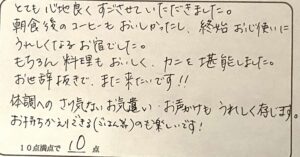 とても心地良くすごさせていただきました。
朝食後のコーヒーもおいしかったし、終始お心使いに
うれしくなるお宿でした。
もちろん料理もおいしく、カニを堪能しました。
お世辞抜きで、また来たいです!!
体調へのさり気ないお気遣い・お声かけもうれしく存じます。
お持ちかえりできる(ごはん等)のも楽しいです!
10点満点で 10 点